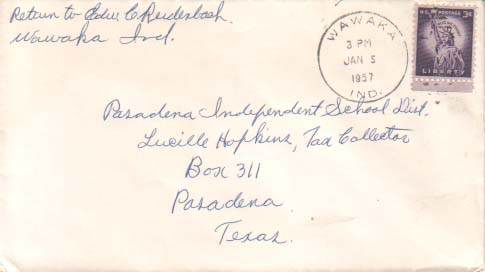 Return to Edw. C. Reidenbach.
Wawaka Ind.
WAWAKA
3 PM
JAN 5
1957
IND.
U.S. POSTAGE 3¢
LIBERTY
Pasadena Independent School Dist.
Lucille Hopkins, Tax Collector
Box 311
Pasadena
Texas.